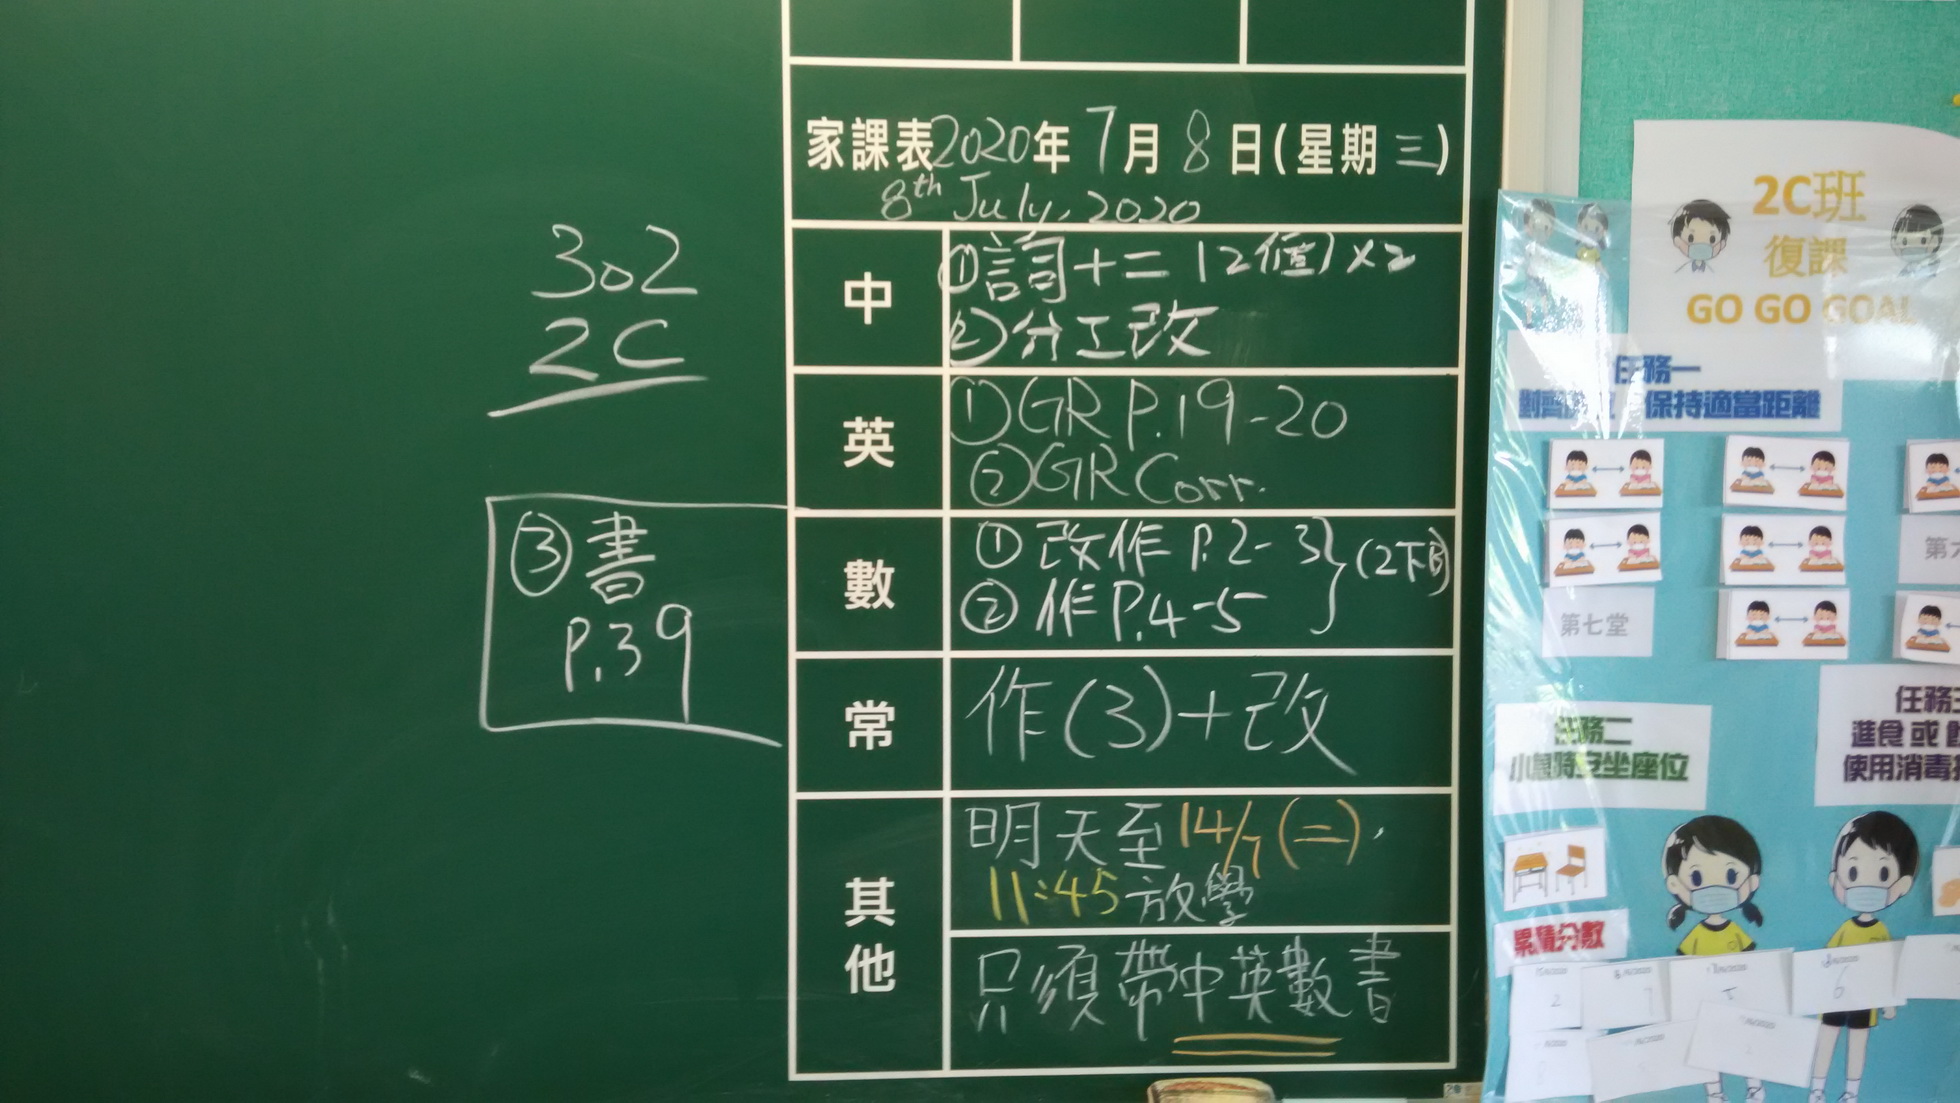 家課表2020年7月8日(星期三)
8th July, 2020
302
2C
中
①詞十二 12個×2
②分工改
英
①GR P.19-20
②GR Corr.
數
①改作 P.2-3
②作 P.4-5
(2下B)
③書
P.39
常
作(3)+改
其他
明天至14/7(二),
11:45放學
只須帶中英數書
2C班
復課
GO GO GOAL
任務一
保持適當距離
第七堂
任務二
小息時安坐座位
進食或
使用消毒
累積分數